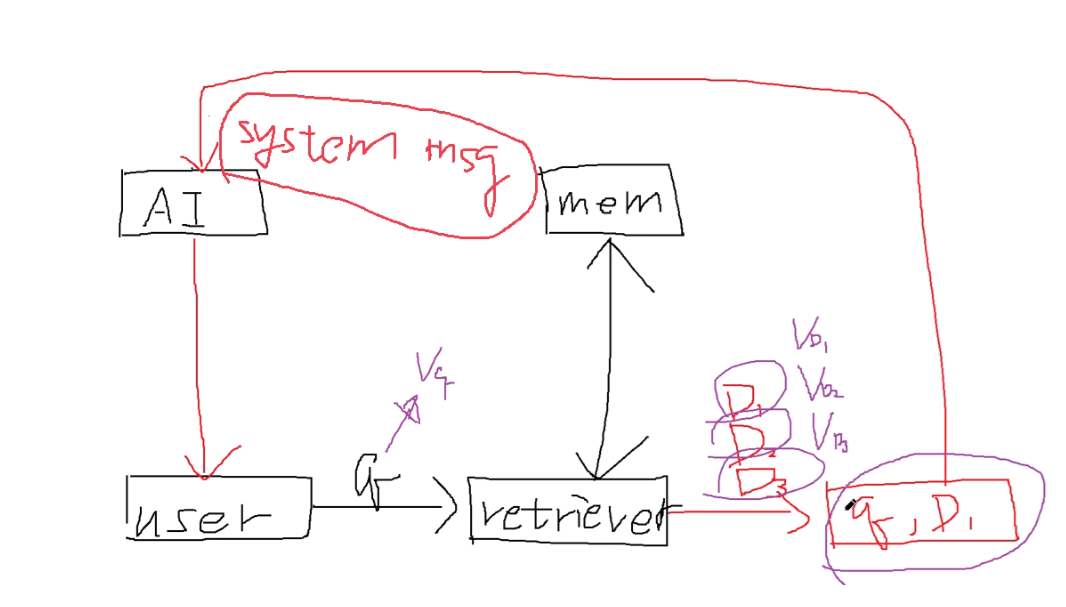 system msg
AI
mem
V_D1
V_q
D1
V_D2
D2
V_D3
D3
q
user
retriever
q, D1